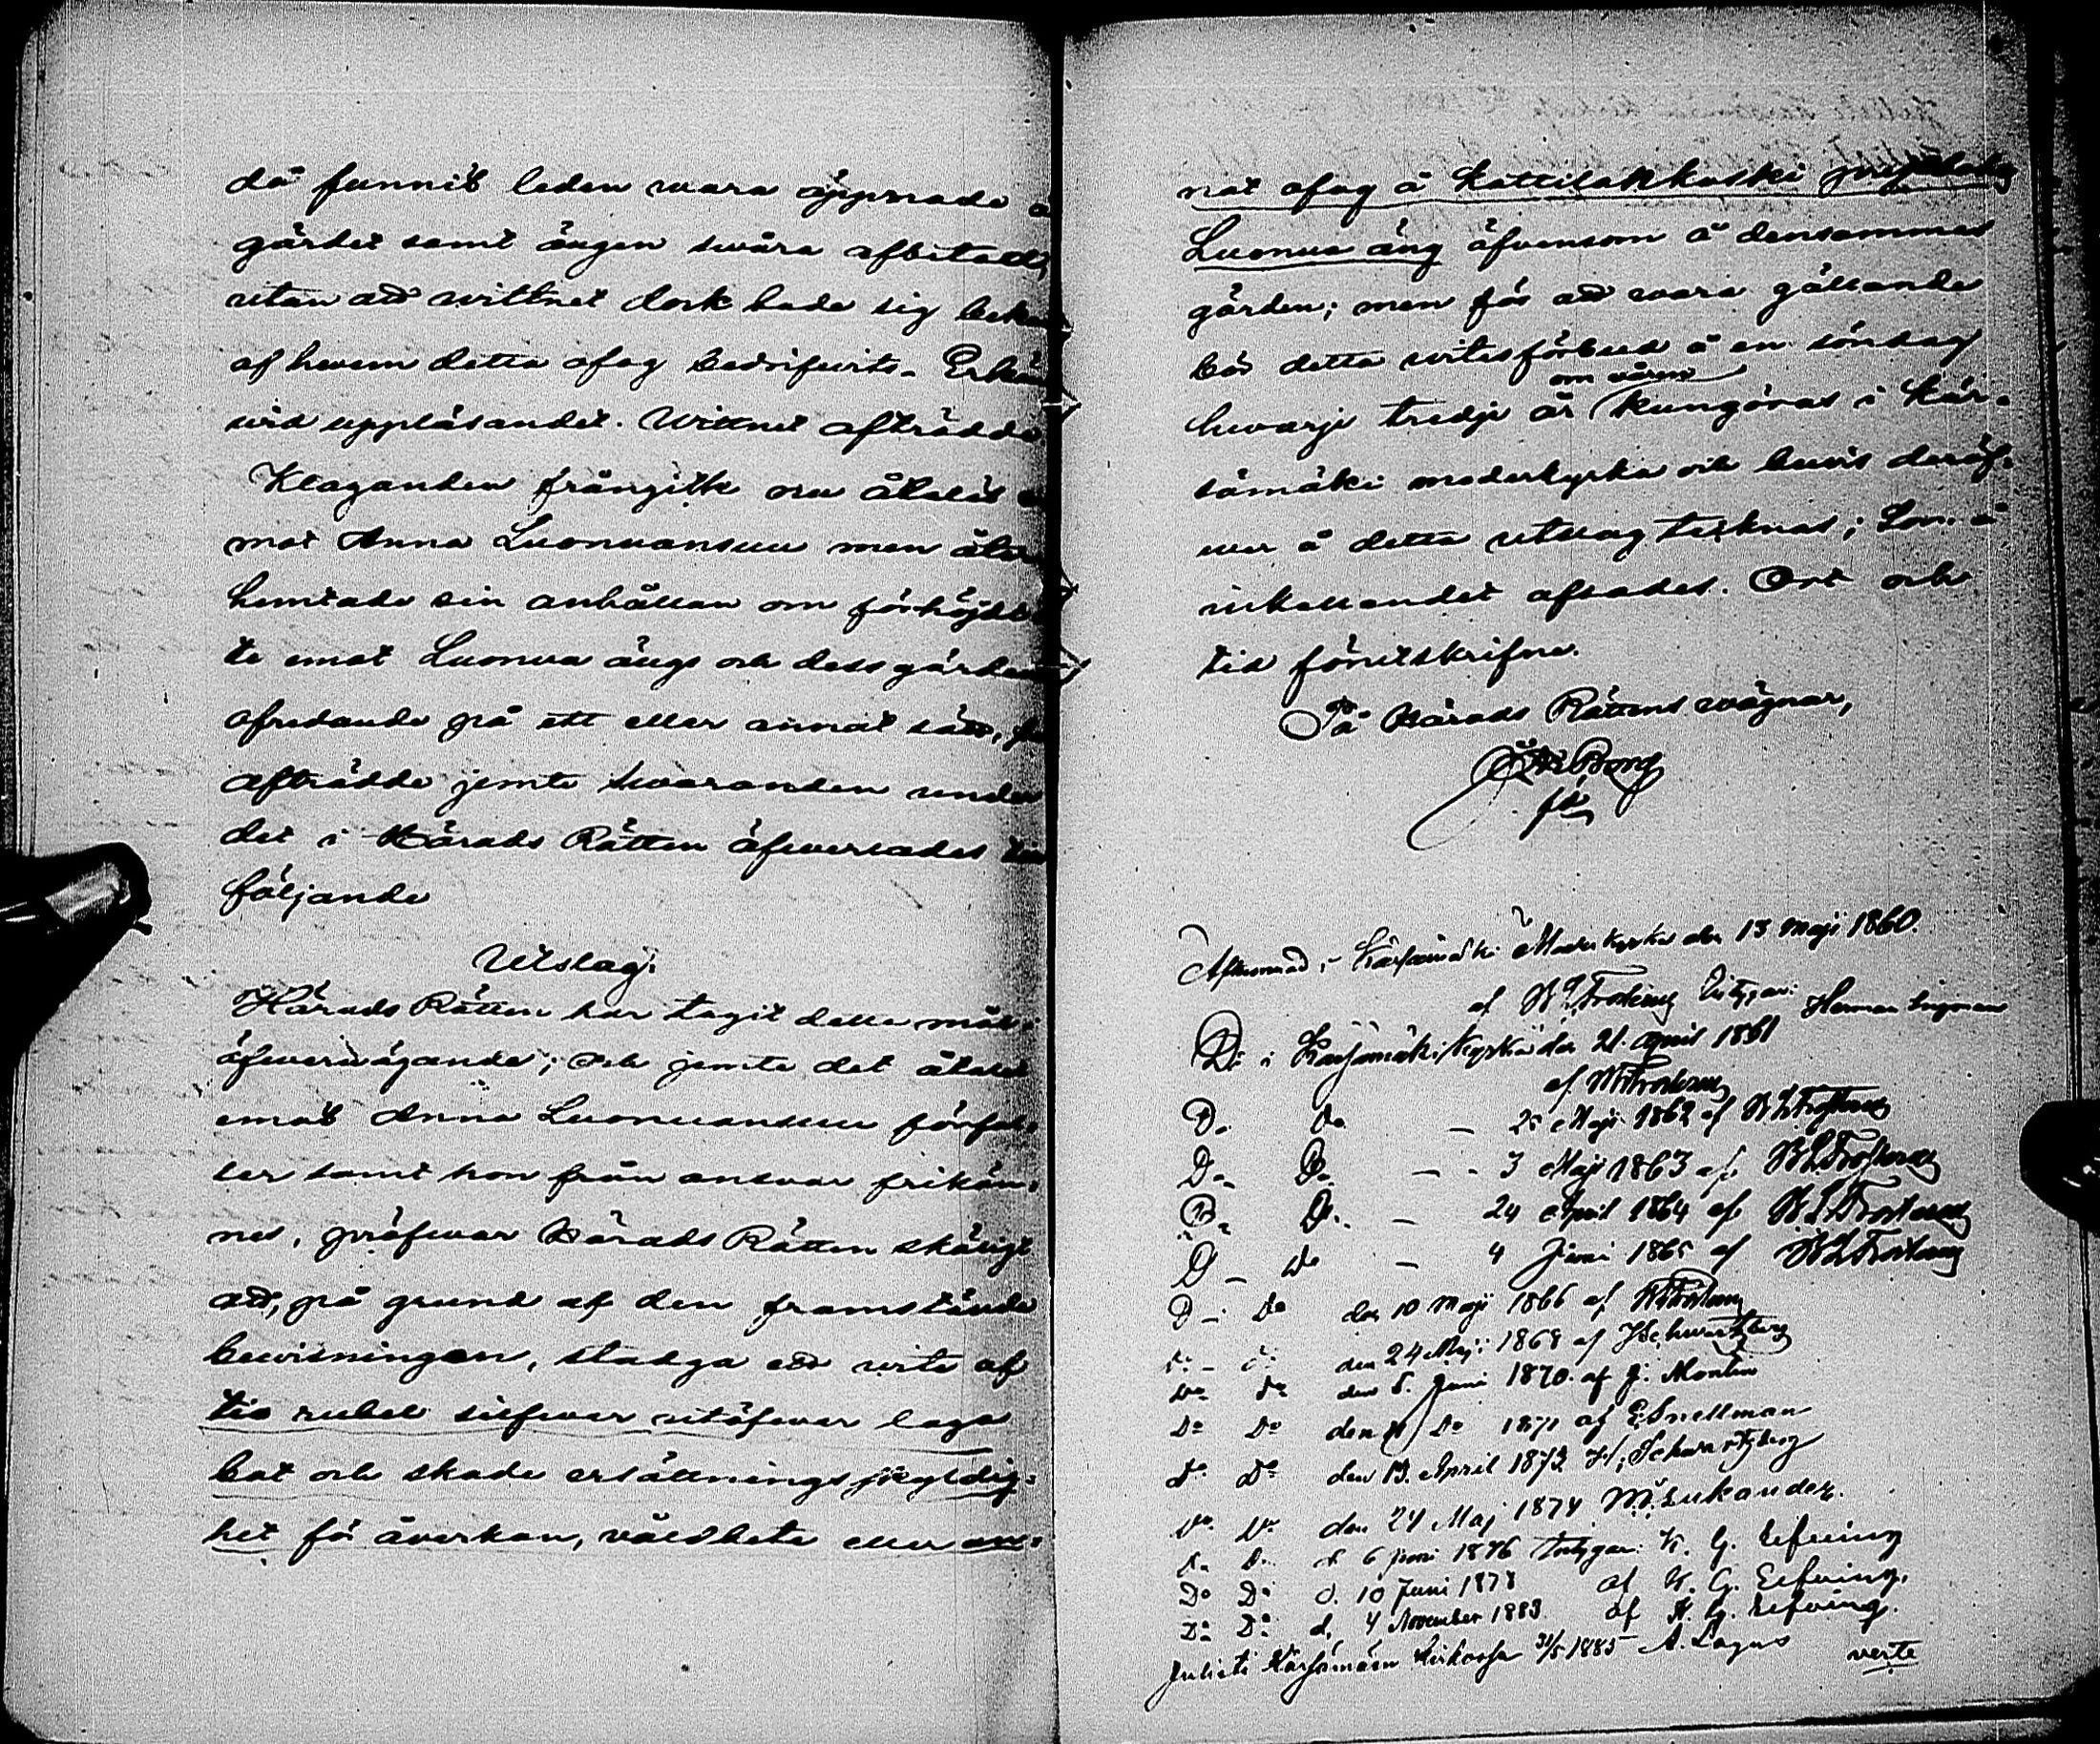 då funnit leden wara öppnade
gärdet samt ängen swåra afbetad,
utan att wittnet dock hade sig
af hwem detta ofog bedrifwits.
wid uppläsandet. Wittnet afträdde
Klaganden frångick sin åtalet
mot Anna Luonuansuu men
hemtade sin anhållan om förhöjdt
te emot Luonua ängs och dess
ofredande på ett eller annat sätt,
afträdde jemte swaranden
det i Härads Rätten öfwerlades
följande
Utslag:
Härads Rätten har tagit detta mål
öfwerwägande; och jemte det åtalet
emot Anna Luonuansuu förfal-
ler samt hon från answar frikän-
nes, pröfwar Härads Rätten skäligt
att, på grund af den framstände
bewisningen, stadga ett wite af
tio rubel silfwer utöfwer laga
bot och skade ersättningsskyldig-
het för åwerkan, våldbete eller an-
nat ofog å Kattilakkoski
Luonua äng äfvensom å densammes
gärden; men för att wara gällande
bör detta witesförbud å en söndag
om våren
hwarje tredje år kungöras i Kär-
sämäki moderkyrka och bewis deröf-
wer å detta utslag tecknas; Som
afsades. Ort och
tid förutskrifne.
På Härads Rättens wägnar,
Afkunnad i Kärsämäki Moderkyrka den 13 Maji 1860.
af Witygar: Herman
Do i Kärsämäki Kyrka den 21 April 1861
af
Do Do — 25 Maji 1862 af
Do Do — 3 Maji 1863 af
Do Do — 24 April 1864 af
Do Do — 4 Juni 1865 af
Do Do den 10 Maji 1866 af
Do Do den 24 Maji 1868 af J Schwartzberg
Do Do den 5. Juni 1870. af J. Montin
Do Do den Do 1871 af E. Snellman
Do Do den 13. April 1873 Schwartzberg
Do Do den 24 Maj 1874 M. Lukander.
Do Do d 6 Juni 1876 K. G. Elfving
Do Do d. 10 Juni 1878 af K. G. Elfving.
Do Do d. 4 November 1883. af K. G. Elfving.
Julisti Kärsämäen kirkossa 31/5 1885 A. Lagus verte